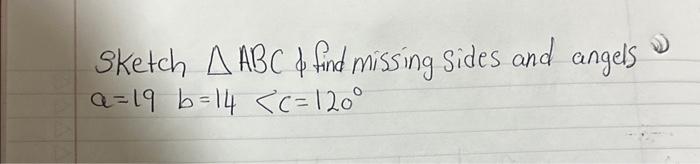 Sketch △ ABC & find missing sides and angels
a=19 b=14 <c=120°